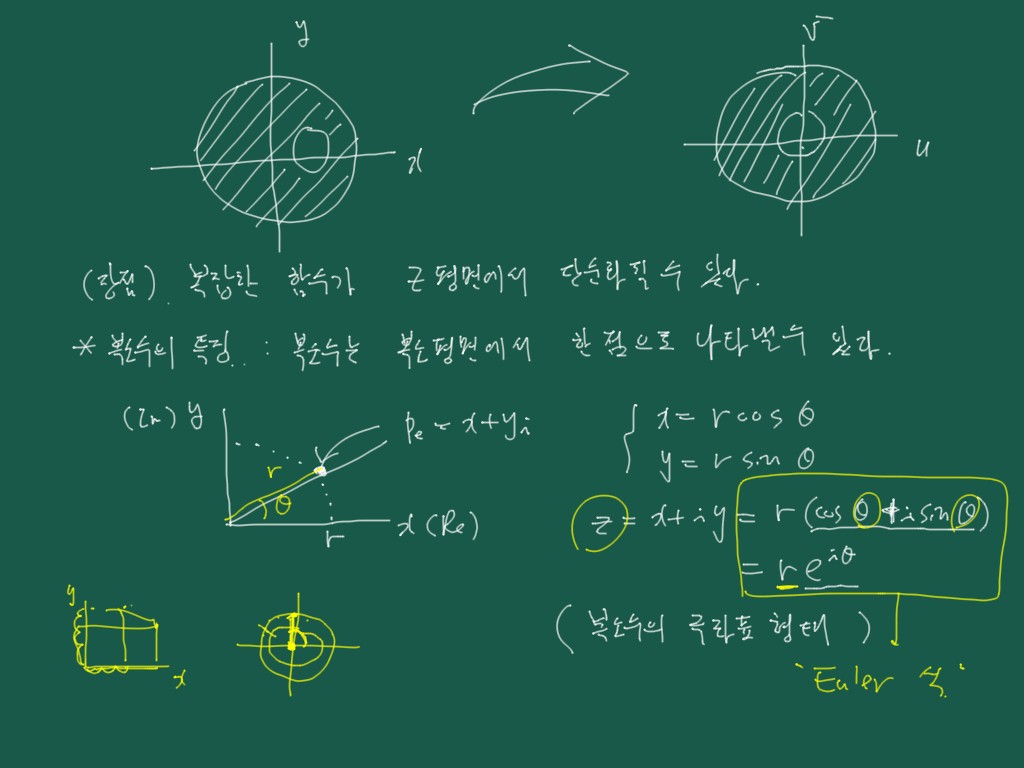 y
x
v
u
(장점). 복잡한 함수가 z 평면에서 단순화 될 수 있다.
* 복소수의 특징. : 복소수는 복소평면에서 한 점으로 나타낼 수 있다.
(Im) y
r
θ
x + yi
x (Re)
r
x = r cos θ
y = r sin θ
z = x + i y = r (cos θ + i sin θ)
= r e^{iθ}
(복소수의 극좌표 형태)
"Euler 식"
y
x